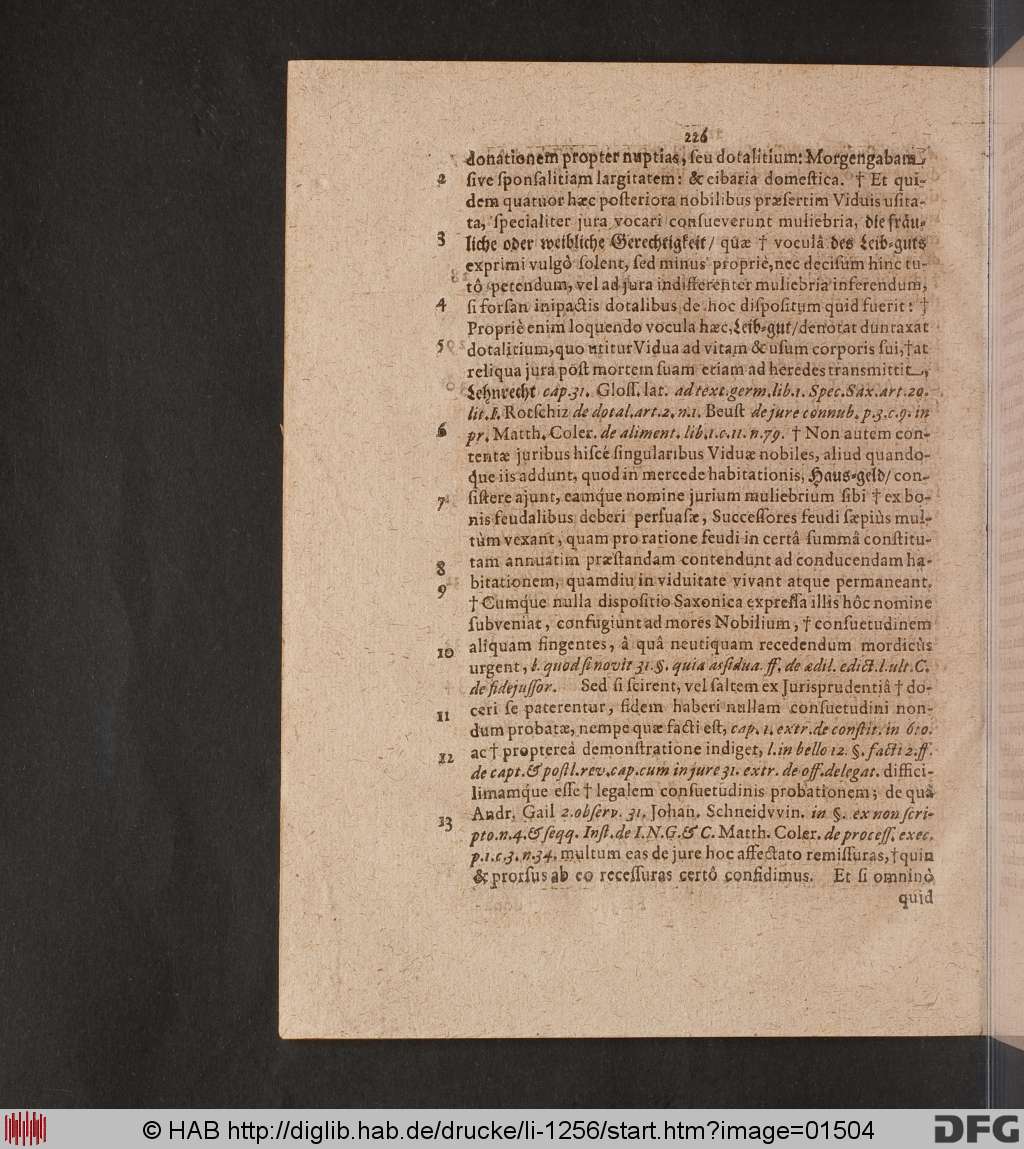 226
donationem propter nuptias, ſeu dotalitium: Morgengabam
2 ſive ſponſalitiam largitatem: & cibaria domeſtica. † Et qui-
dem quatuor hæc poſteriora nobilibus præſertim Viduis uſita-
ta, ſpecialiter jura vocari conſueverunt muliebria, die fräu-
3 liche oder weibliche Gerechtigkeit/ quæ † voculâ des Leib-guts
exprimi vulgò ſolent, ſed minus propriè, nec deciſum hinc tu-
tô petendum, vel ad jura indifferenter muliebria inferendum,
4 ſi forſan in pactis dotalibus de hoc diſpoſitum quid fuerit: †
Propriè enim loquendo vocula hæc, Leib-gut/ denotat duntaxat
5 dotalitium, quo utitur Vidua ad vitam & uſum corporis ſui, † at
reliqua jura pòſt mortem ſuam etiam ad heredes transmittit,
Lehnrecht cap. 31. Gloſſ. lat. ad text. germ. lib. 1. Spec. Sax. art. 20.
lit. I. Rotſchiz de dotal. art. 2. n. 1. Beuſt de jure connub. p. 3. c. 9. in
6 pr. Matth. Coler. de aliment. lib. 1. c. 11. n. 79. † Non autem con-
tentæ juribus hiſce ſingularibus Viduæ nobiles, aliud quando-
que iis addunt, quod in mercede habitationis, Haus-geld/ con-
7 ſiſtere ajunt, eamque nomine jurium muliebrium ſibi † ex bo-
nis feudalibus deberi perſuaſæ, Succeſſores feudi ſæpiùs mul-
tùm vexant, quam pro ratione feudi in certâ ſummâ conſtitu-
8 tam annuatim præſtandam contendunt ad conducendam ha-
bitationem, quamdiu in viduitate vivant atque permaneant.
9 † Cumque nulla diſpoſitio Saxonica expreſſa illis hôc nomine
ſubveniat, confugiunt ad mores Nobilium, † conſuetudinem
10 aliquam fingentes, â quâ neutiquam recedendum mordicùs
urgent, l. quod ſi novit 31. §. quia aſsidua. ff. de ædil. edict. l. ult. C.
de fidejuſſor. Sed ſi ſcirent, vel ſaltem ex Jurisprudentiâ † do-
11 ceri ſe paterentur, fidem haberi nullam conſuetudini non-
dum probatæ, nempe quæ facti eſt, cap. 1. extr. de conſtit. in 6to.
12 ac † proptereà demonſtratione indiget, l. in bello 12. §. facti 2. ff.
de capt. & poſtl. rev. cap. cum in jure 31. extr. de off. delegat. diffici-
limamque eſſe † legalem conſuetudinis probationem; de quâ
13 Andr. Gail 2. obſerv. 31. Johan. Schneidvvin. in §. ex non ſcri-
pto. n. 4. & ſeqq. Inſt. de I. N. G. & C. Matth. Coler. de proceſſ. exec.
p. 1. c. 3. n. 34. multum eas de jure hoc affectato remiſſuras, † quin
& prorſus ab eo receſſuras certô confidimus. Et ſi omninò
quid
© HAB http://diglib.hab.de/drucke/li-1256/start.htm?image=01504
DFG